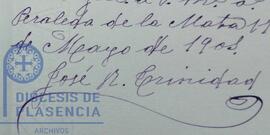 Peraleda de la Mata 11
de Mayo de 1903
José R. Trinidad
DIOCESIS DE
PLASENCIA
ARCHIVOS